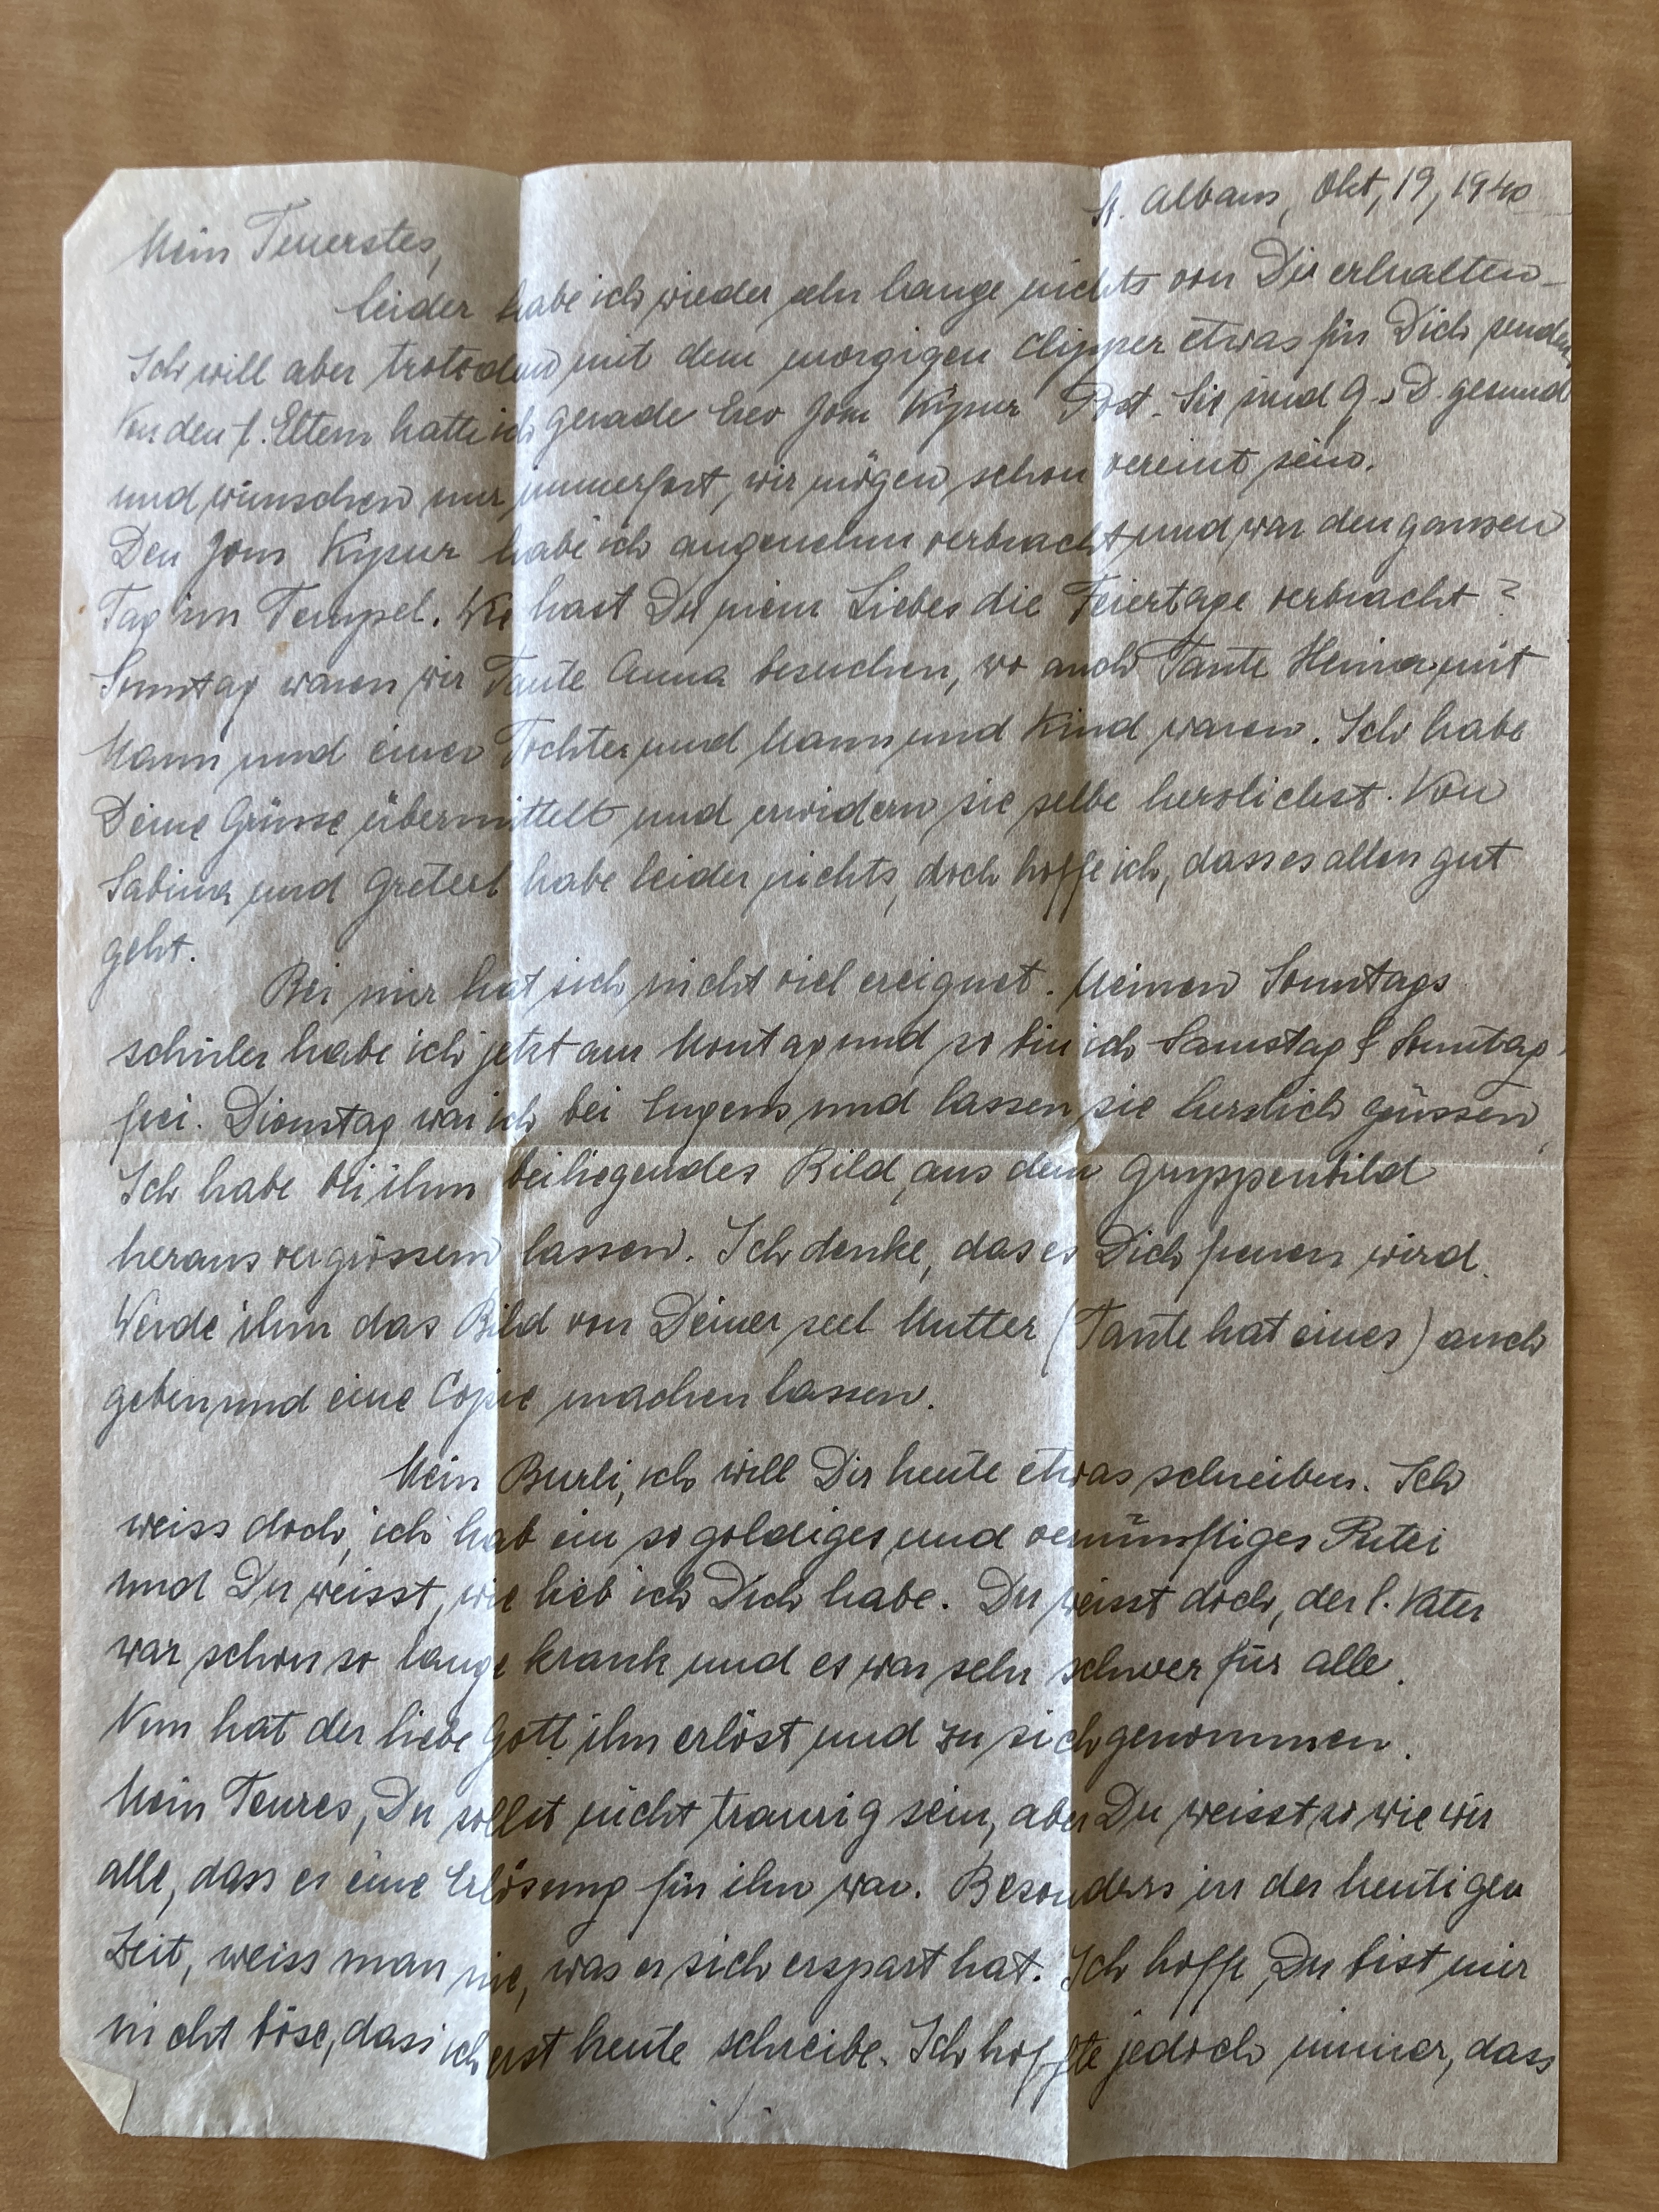 St. Albans, Okt, 19, 1940
Mein Teuerstes,
leider habe ich wieder sehr lange nichts von Dir erhalten.
Ich will aber trotzdem mit dem morgigen Clipper etwas für Dich senden
Von den l. Eltern hatte ich gerade Erev Jom Kipur Post. Sie sind G.s.D. gesund
und wünschen nur immerfort, wir mögen schon vereint sein.
Den Jom Kipur habe ich angenehm verbracht und war den ganzen
Tag im Tempel. Wie hast Du mein Liebes die Feiertage verbracht?
Sonntag waren wir Tante Anna besuchen, wo auch Tante mit
Mann und einer Tochter und Mann und Kind waren. Ich habe
Deine Grüsse übermittelt und erwidern sie selbe herzlichst. Von
Sabina und Greterl habe leider nichts, doch hoffe ich, dass es allen gut
geht.
Bei mir hat sich nicht viel ereignet. Meinen Sonntags
schüler habe ich jetzt am Montag und so bin ich Samstag & Sonntag
frei. Dienstag war ich bei Eugens und lassen sie herzlich grüssen,
Ich habe bei ihm beiliegendes Bild, aus dem Gruppenbild
heraus vergrössern lassen. Ich denke, das es Dich freuen wird.
Werde ihm das Bild von Deiner seel Mutter (Tante hat eines) auch
geben und eine Copie machen lassen.
Mein Burli, ich will Dir heute etwas schreiben. Ich
weiss doch, ich hab ein so goldiges und vernünftiges
und Du weisst, wie lieb ich Dich habe. Du weisst doch, der l. Vater
war schon so lange krank und es war sehr schwer für alle.
Nun hat der liebe Gott ihn erlöst und zu sich genommen.
Mein Teures, Du sollst nicht traurig sein, aber Du weisst so wie wir
alle, dass es eine Erlösung für ihn war. Besonders in der heutigen
Zeit, weiss man nie, was er sich erspart hat. Ich hoffe, Du bist mir
nicht böse, dass ich erst heute schreibe. Ich hoffte jedoch immer, dass